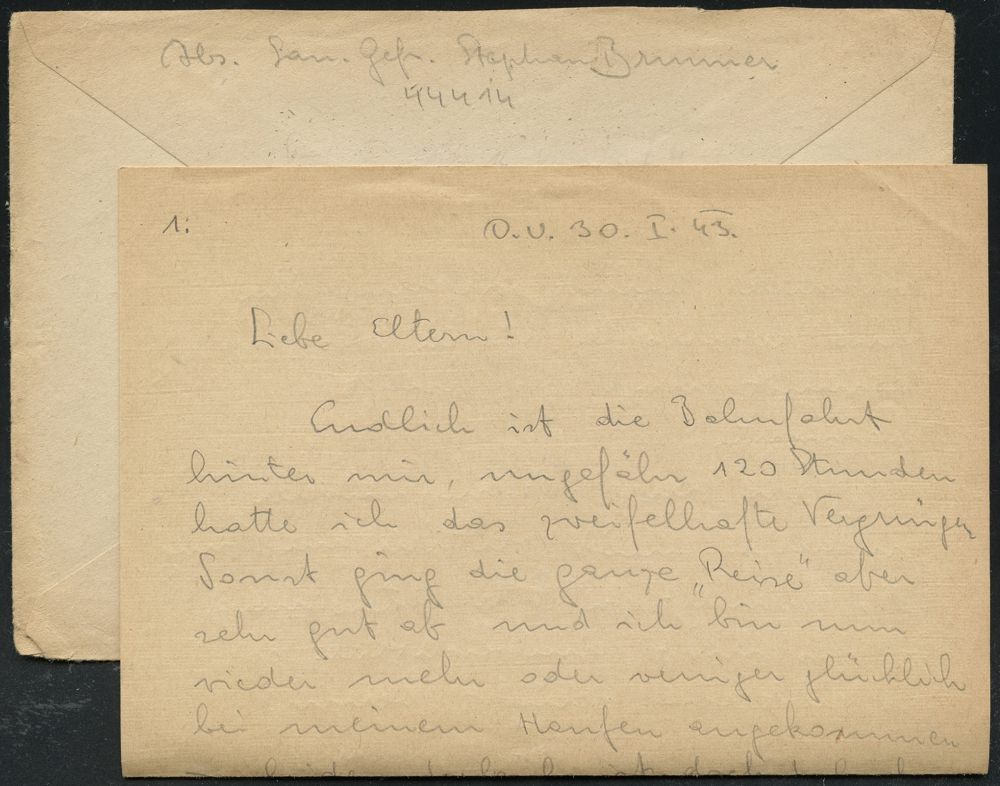 Abs. San. Gefr. Stephan Brunner
44414
1.
O.U. 30. I. 43.
Liebe Eltern!
Endlich ist die Bahnfahrt
hinter mir, ungefähr 120 Stunden
hatte ich das zweifelhafte Vergnügen
Sonst ging die ganze „Reise" aber
sehr gut ab und ich bin nun
wieder mehr oder weniger glücklich
bei meinem Haufen angekommen